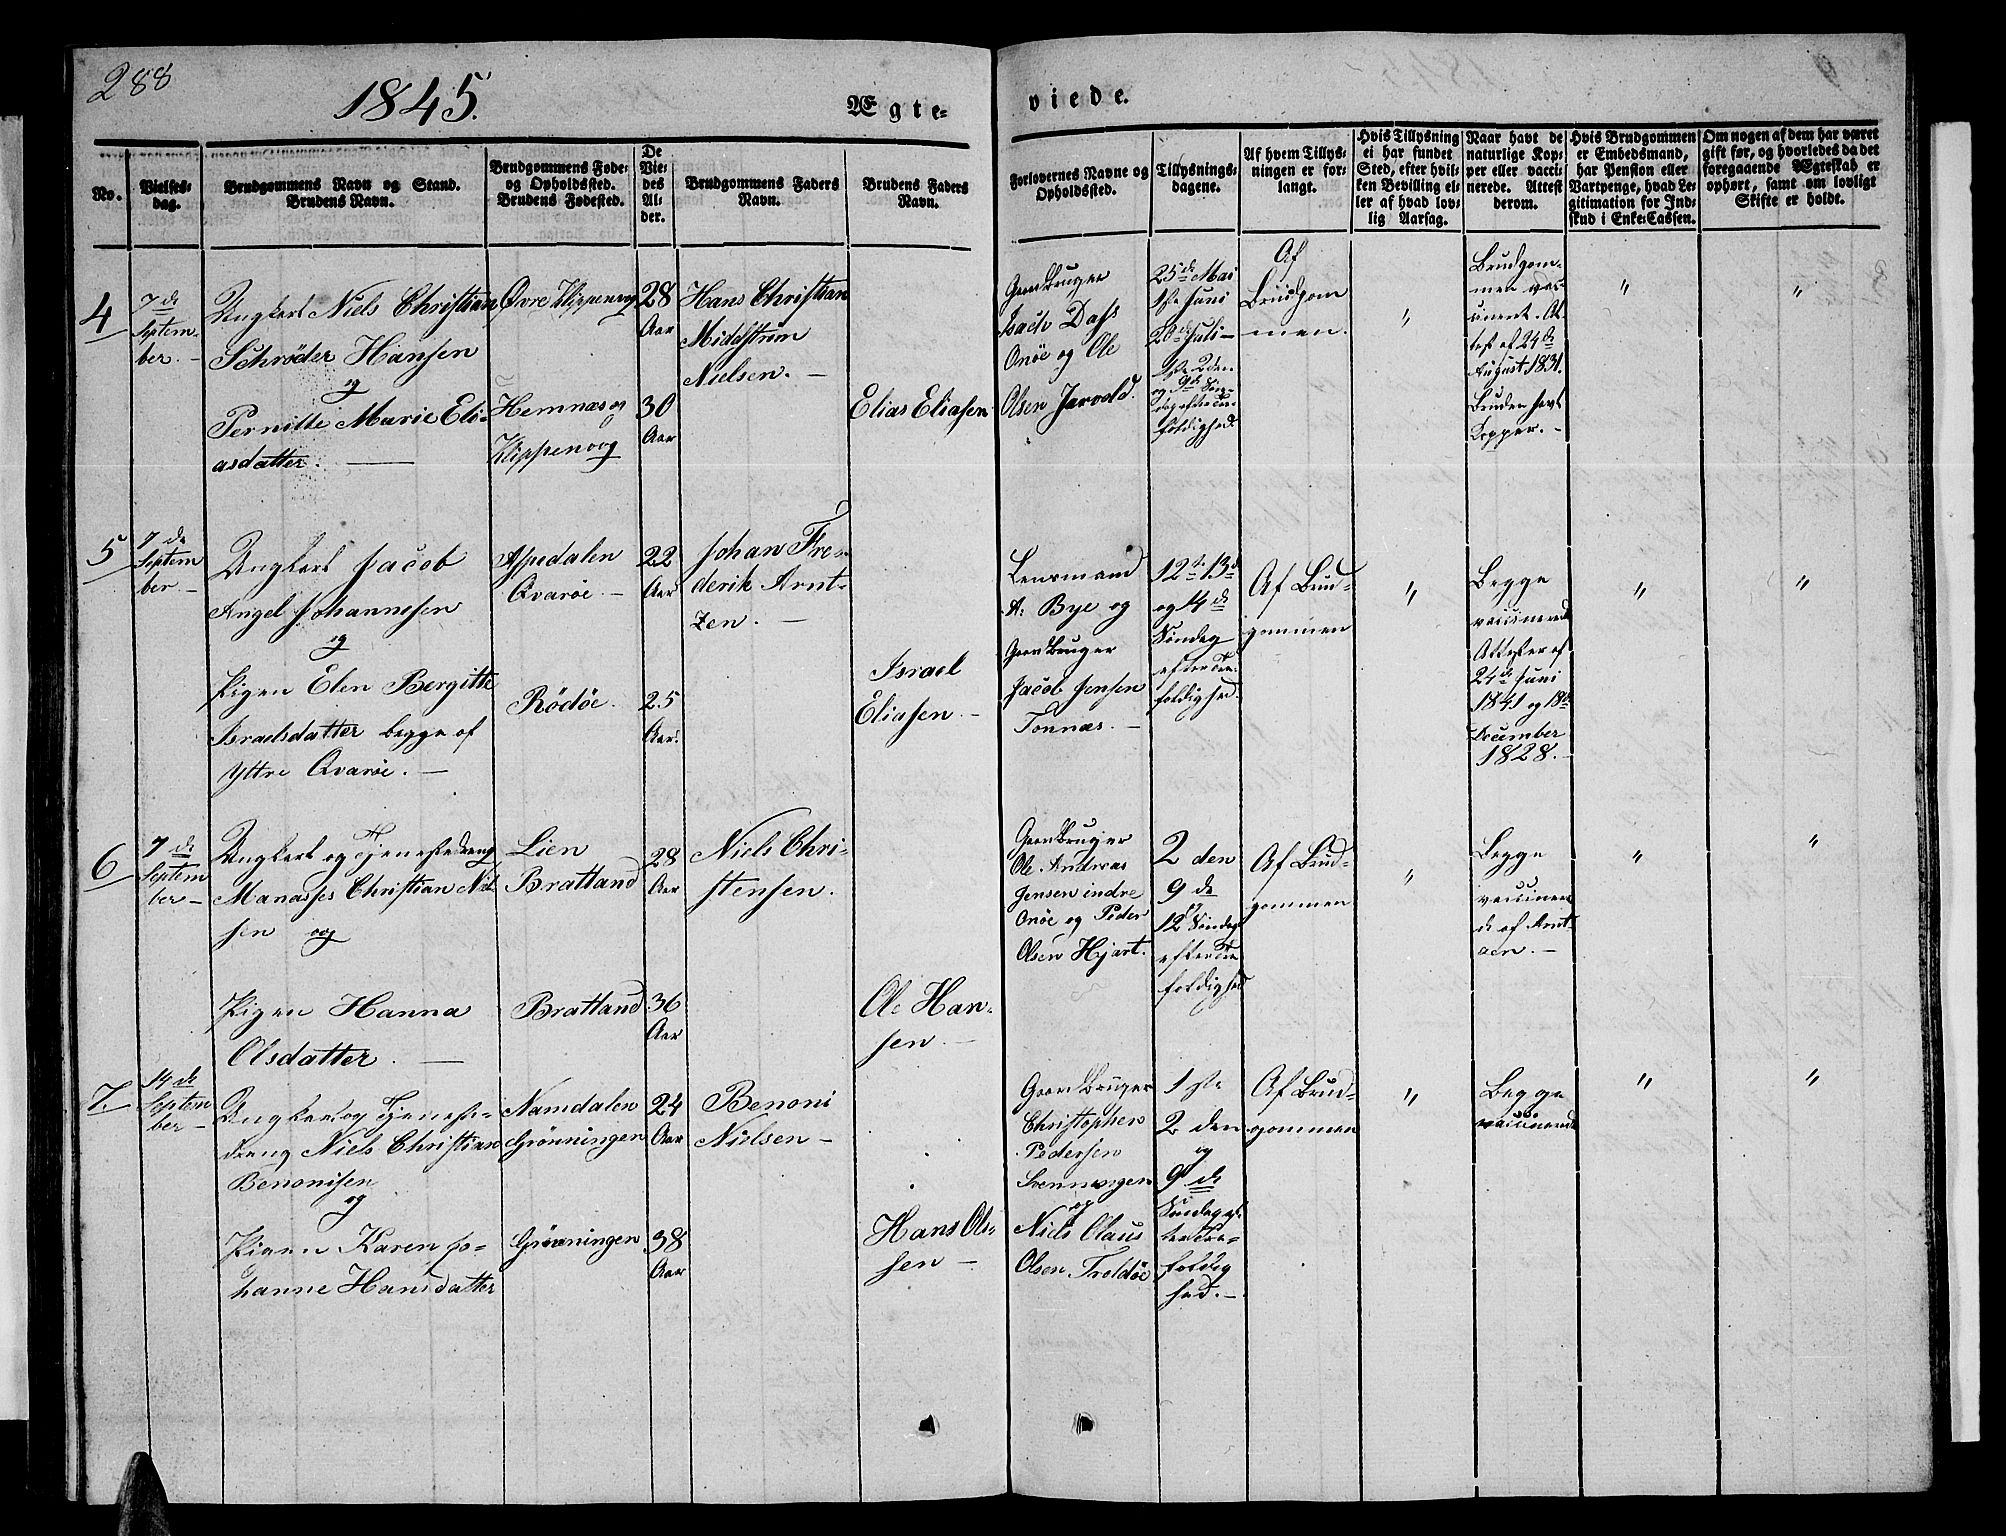 288
1845.
Ægte-
viede.
No.
Vielses-
dag.
Brudgommens Navn og Stand.
Brudens Navn.
Brudgommens Føde-
og Opholdssted.
Brudens Fødested.
De
Vie-
des
Al-
der.
Brudgommens Faders
Navn.
Brudens Faders
Navn.
Forlovernes Navne og
Opholdssted.
Tillysnings-
dagene.
Af hvem Tillys-
ningen er for-
langt.
Hvis Tillysning
ei har fundet
Sted, efter hvil-
ken Bevilling el-
ler af hvad lov-
lig Aarsag.
Naar havt de
naturlige Kop-
per eller vacci-
nerede. Attest
derom.
Hvis Brudgommen
er Embedsmand,
har Pension eller
Vartpenge, hvad Le-
gitimation for Ind-
skud i Enke-Cassen.
Om nogen af dem har været
gift før, og hvorledes da det
foregaaende Ægteskab er
ophørt, samt om lovligt
Skifte er holdt.
4
7de
Septem-
ber.
Ungkarl Niels Christian
Schrøder Hansen
og
Pernille Marie Eli-
asdatter.
Øvre Klippenvog
Hemnæs og
Klippenvog
28
Aar
30
Aar
Hans Christian
Middstrøm
Nielsen.
Elias Eliasen
Gaardbruger
Isach Dass
Onøe og Ole
Olsen Jarvold.
25de Mai
1ste Juni
20de Juli
1ste 2den
og 9de Søn-
dag efter Tre-
foldighed
Af
Brudgom
men.
"
Brudgom-
men vac-
cineret. At-
test af 24de
August 1831.
Bruden havt
Kopper.
"
"
5
7de
Septem
ber
Ungkarl Jacob
Angel Johannessen
og
Pigen Elen Bergitte
Israelsdatter begge af
Yttre Qvarøe.
Aspedalen
Qvarøe.
Rødøe
22
Aar
25
Aar.
Johan Fre-
derik Arnt-
zen.
Israel
Eliasen
Lensmand
A. Bye og
Gaardbruger
Jacob Jensen
Tonnæs.
12te 13de
og 14de
Søndag
efter Tre-
foldighed.
Af Brud-
gommen
"
Begge
vaccinerede
Attester af
24de Juni
1841 og 18de
December
1828.
"
"
6
7de
Septem
ber
Ungkarl og Tjenestedreng
Manasses Christian Niel
sen og
Pigen Hanna
Olsdatter.
Lien
Bratland
Bratland
28
Aar
36
Aar
Niels Chri-
stensen.
Ole Han-
sen.
Gaardbruger
Ole Andreas
Jensen indre
Onøe og Peder
Olsen Hjart.
2den
9de
12te Søndag
efter Tre
foldighed
Af Brud-
gommen
"
Begge
vaccinere
de af Arnt-
zen.
"
"
7.
14de
Septem
ber
Ungkarl og Tjeneste-
dreng Niels Christian
Benonisen
og
Pigen Karen Jo-
hanne Hansdatter
Namdalen
Grønningen
Grønningen
24
Aar
38
Aar
Benoni
Nielsen
Hans Ols-
sen
Gaardbruger
Christopher
Pedersen
Svenningen
og
Niels Olaus
Olsen Troldøe
1ste
2den
og
9de
Søndag ef-
ter Tre-
foldig
hed.
Af Brud-
gommen
"
Begge
vaccinerede
"
"